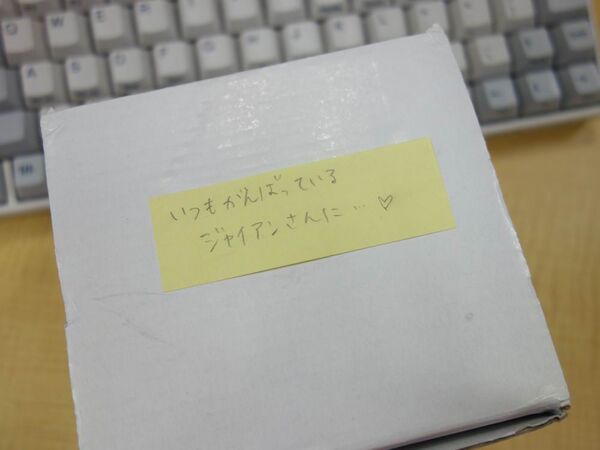 いつもがんばっている
ジャイアンさんに…♡